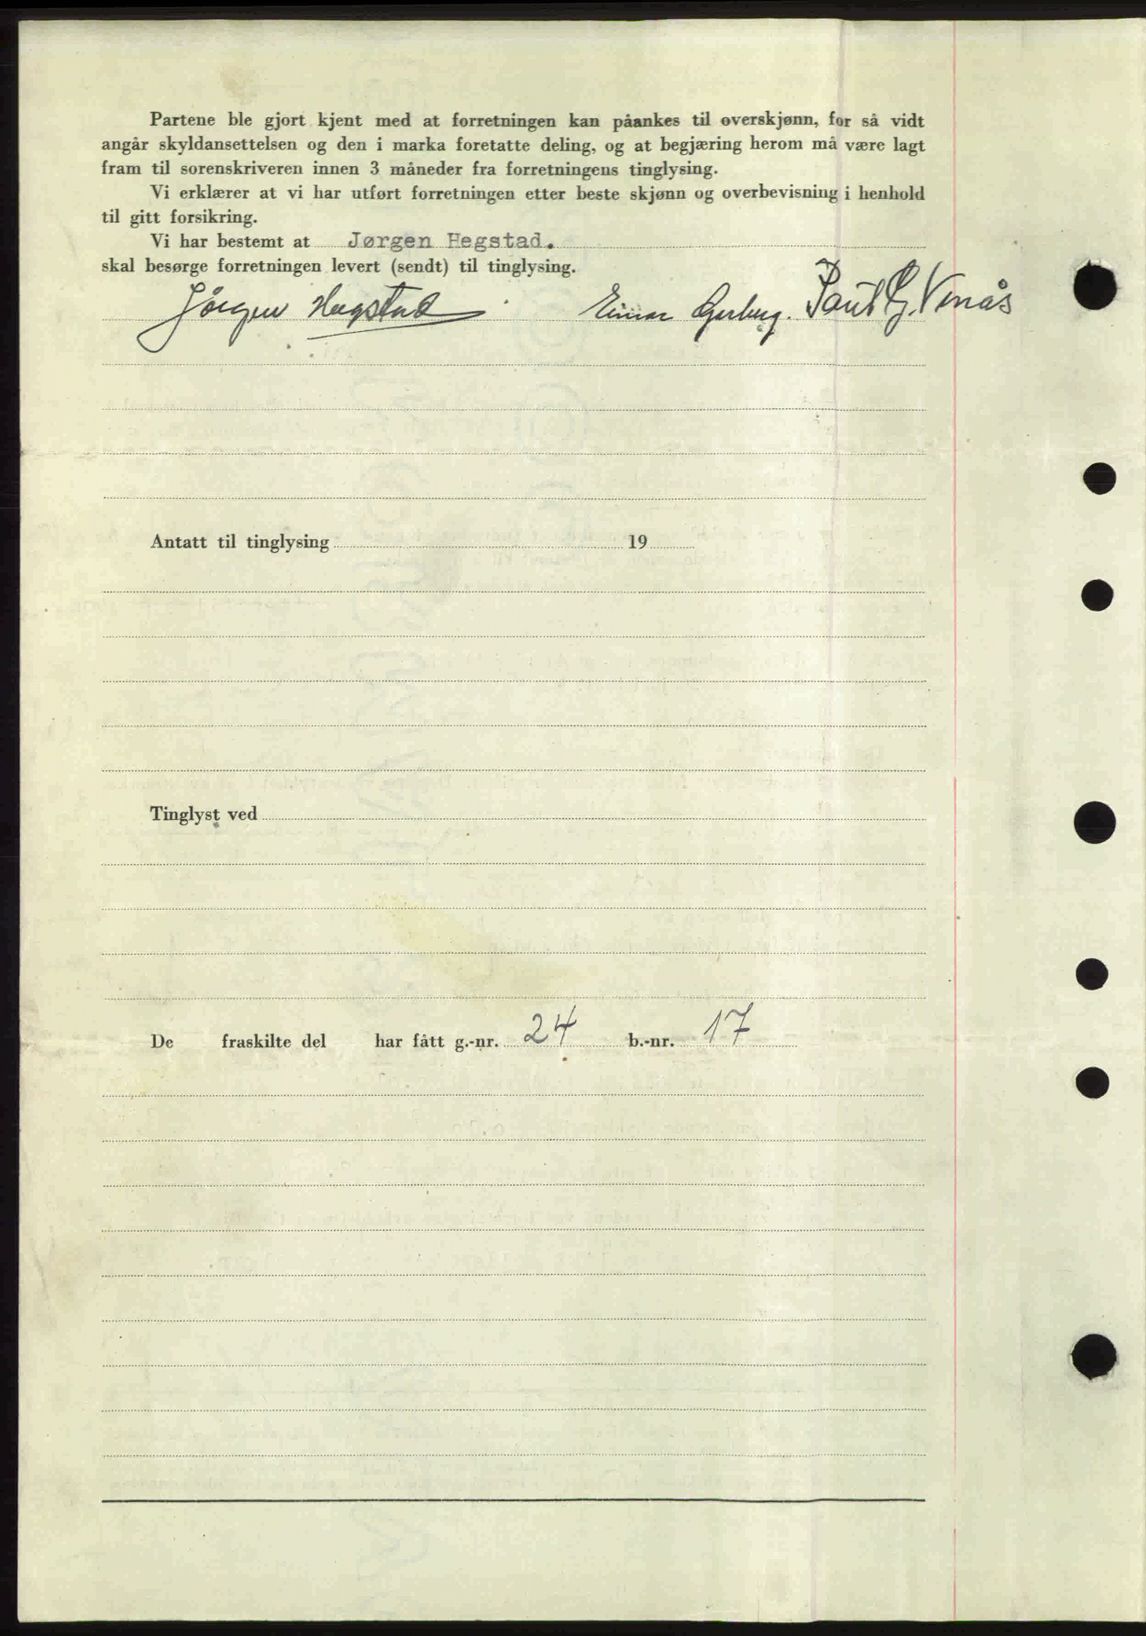 Partene ble gjort kjent med at forretningen kan påankes til overskjønn, for så vidt
angår skyldansettelsen og den i marka foretatte deling, og at begjæring herom må være lagt
fram til sorenskriveren innen 3 måneder fra forretningens tinglysing.
Vi erklærer at vi har utført forretningen etter beste skjønn og overbevisning i henhold
til gitt forsikring.
Vi har bestemt at Jørgen Hegstad.
skal besørge forretningen levert (sendt) til tinglysing.
Jörgen Hegstad Einar Paul G. Venås
Antatt til tinglysing 19
Tinglyst ved
De fraskilte del har fått g.-nr. 24 b.-nr. 17